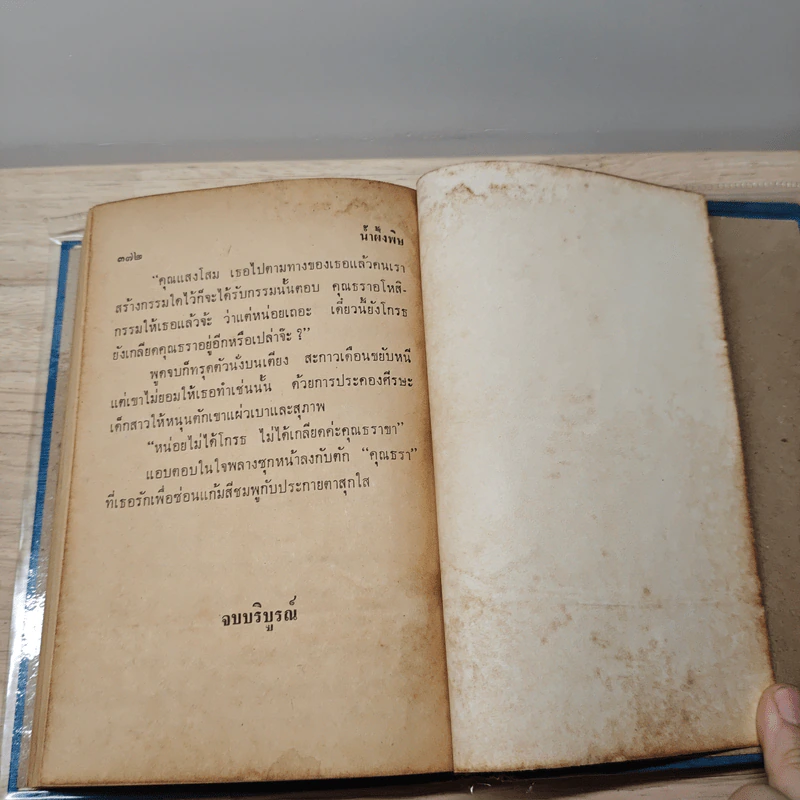 น้ำผึ้งพิษ
๓๗๒
“คุณแสงโสม เธอไปตามทางของเธอแล้วคนเรา
สร้างกรรมใดไว้ก็จะได้รับกรรมนั้นตอบ คุณธราอโหสิ-
กรรมให้เธอแล้วจ้ะ ว่าแต่หน่อยเถอะ เดี๋ยวนี้ยังโกรธ
ยังเกลียดคุณธราอยู่อีกหรือเปล่าจ๊ะ ?”
พูดจบก็ทรุดตัวนั่งบนเตียง สะกาวเดือนขยับหนี
แต่เขาไม่ยอมให้เธอทำเช่นนั้น ด้วยการประคองศีรษะ
เด็กสาวให้หนุนตักเขาแผ่วเบาและสุภาพ
“หน่อยไม่ได้โกรธ ไม่ได้เกลียดค่ะคุณธราขา”
แอบตอบในใจพลางซุกหน้าลงกับตัก “คุณธรา”
ที่เธอรักเพื่อซ่อนแก้มสีชมพูกับประกายตาสุกใส
จบบริบูรณ์